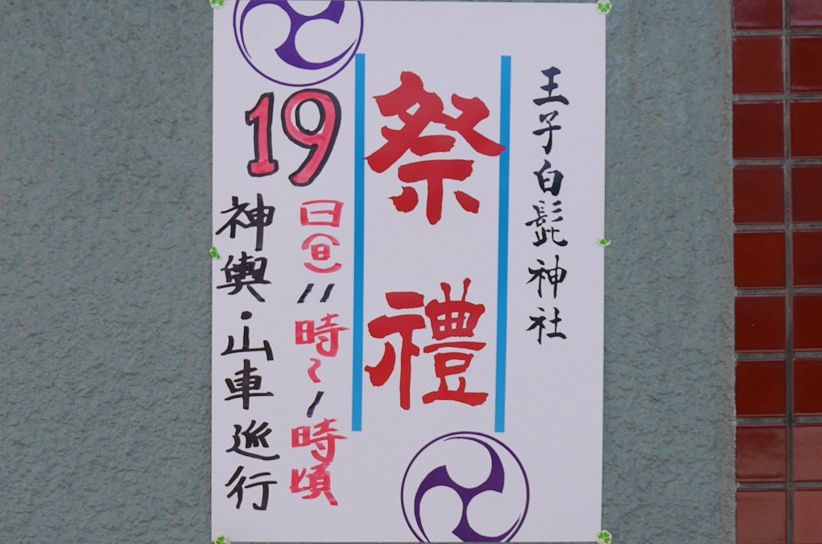 王子白髭神社
祭禮
19日(日)11時〜1時頃
神輿・山車巡行